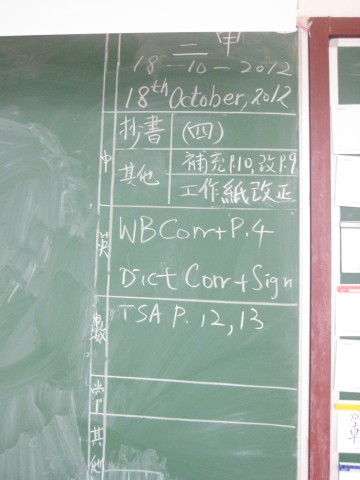 二甲
18-10-2012
18th October, 2012
中
抄書 (四)
其他 補充P.10,改P.9
工作紙改正
英
WB Corr+P.4
Dict Corr+Sign
數
TSA P.12,13
常
其他